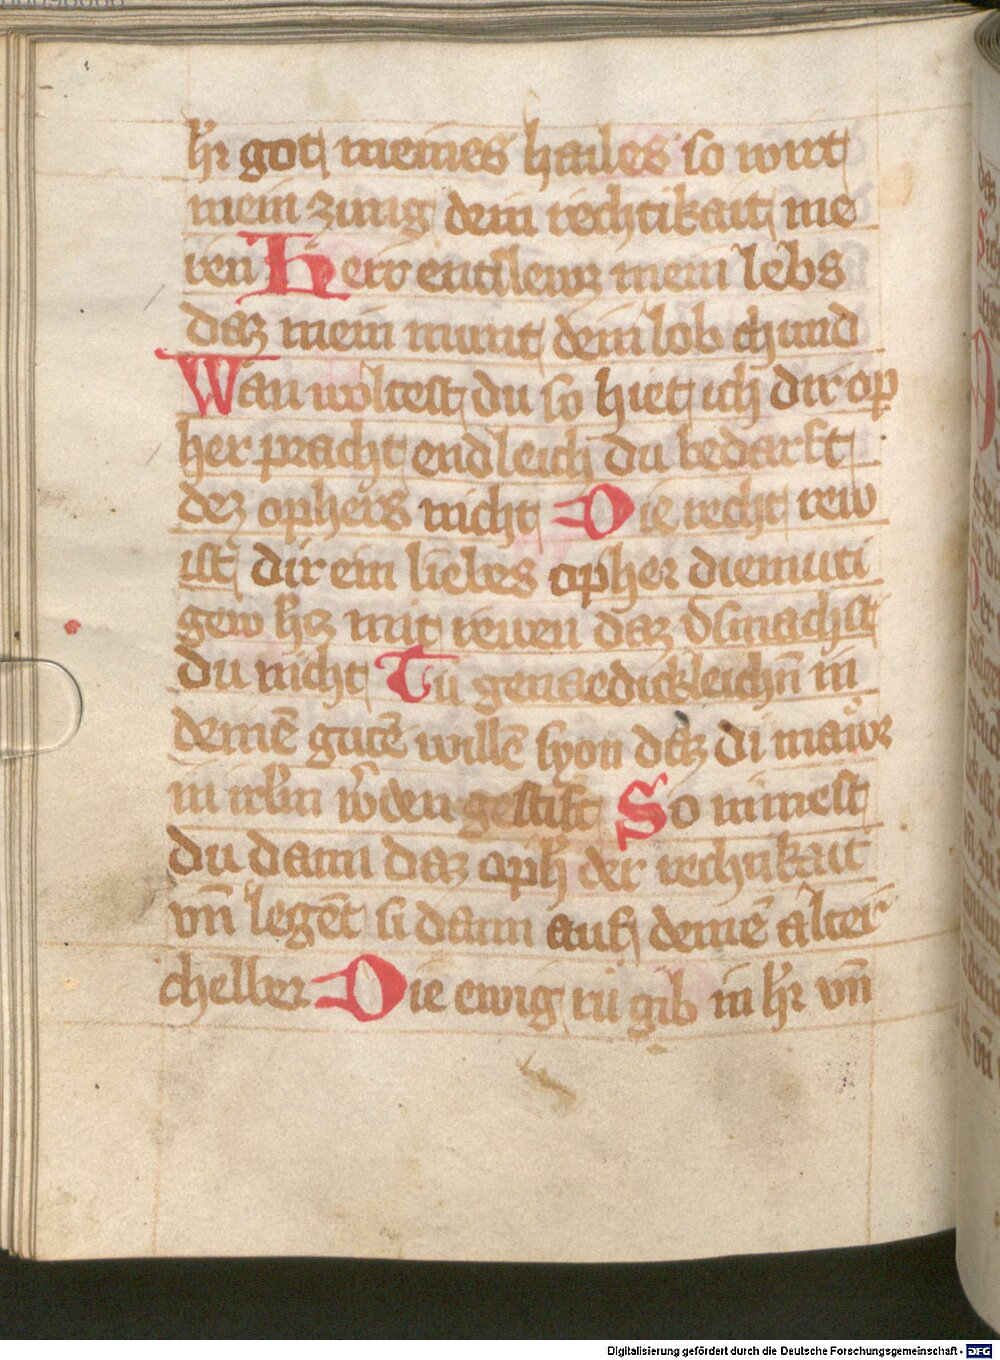 hr̄ got meines hailes so wirt
mein zung dein rechtikait me
ren Herr entsleuz mein lebs
daz mein munt dein lob chund
Wan woltest du so hiet ich dir op
her pracht endleich du bedarft
dez ophers nicht Die recht rew
ist dir ein liebes opher diemuti
gew hꝫ mit rewen daz vſmachst
du nicht Tu genaedickleichn̄ in
deinē gutē willē syon daz di maur
in irlm̄ w̄den gestift So nimest
du dann daz oph̄ der rechtikait
vn̄ legēt si dann auf deinē alter
chelber Die ewig ru gib in hr̄ vn̄
Digitalisierung gefördert durch die Deutsche Forschungsgemeinschaft - DFG